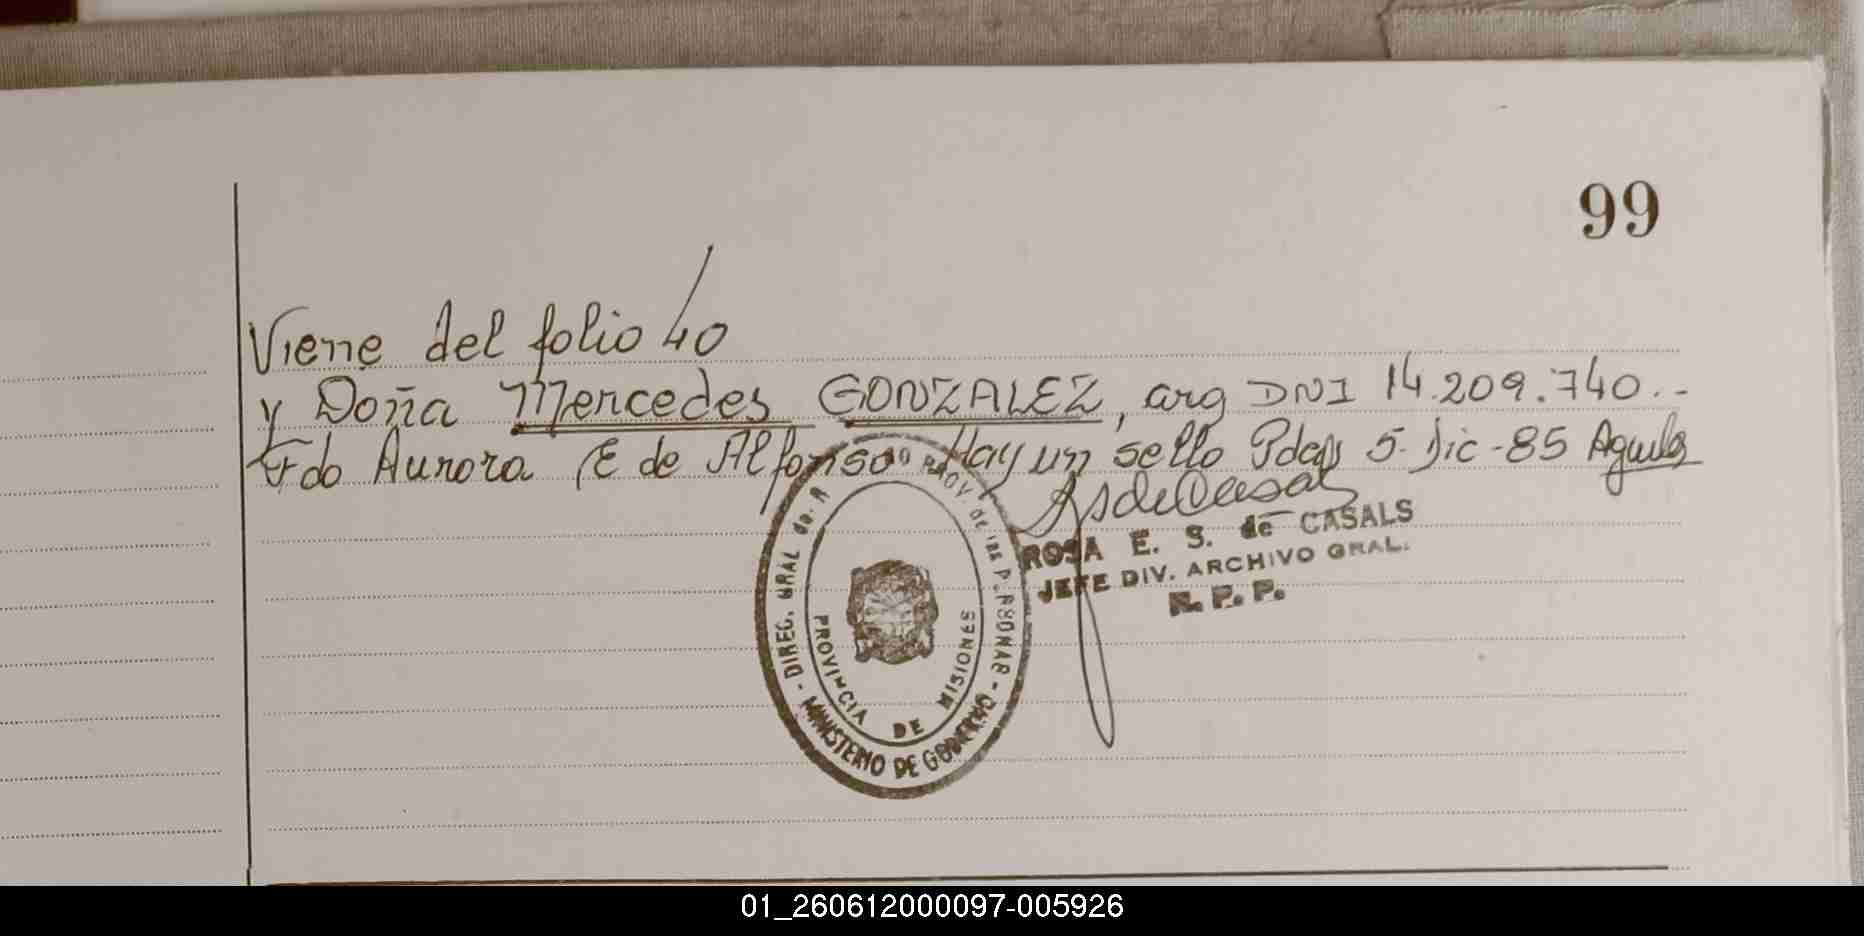 99
Viene del folio 40
y Doña Mercedes GONZALEZ, arg DNI 14.209.740.-
Fdo Aurora E de Alfonso Hay un sello Pdas 5-Dic-85
ROSA E. S. de CASALS
JEFE DIV. ARCHIVO GRAL.
R. P. P.
DIREC. GRAL de PROV. de las PERSONAS - MINISTERIO DE GOBIERNO -
PROVINCIA DE MISIONES
01_260612000097-005926